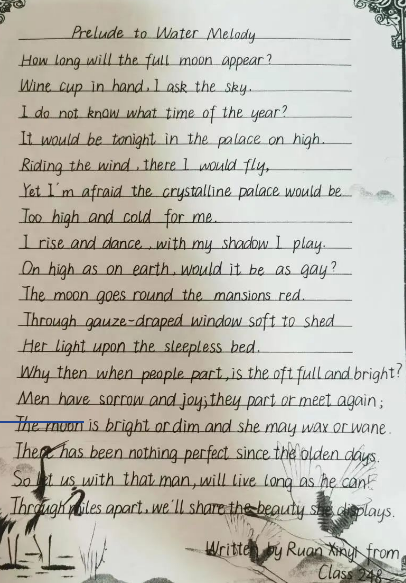 Prelude to Water Melody
How long will the full moon appear?
Wine cup in hand, I ask the sky.
I do not know what time of the year?
It would be tonight in the palace on high.
Riding the wind, there I would fly,
Yet I'm afraid the crystalline palace would be
Too high and cold for me.
I rise and dance, with my shadow I play.
On high as on earth, would it be as gay?
The moon goes round the mansions red.
Through gauze-draped window soft to shed
Her light upon the sleepless bed.
Why then when people part, is the oft full and bright?
Men have sorrow and joy; they part or meet again;
The moon is bright or dim and she may wax or wane.
There has been nothing perfect since the olden days.
So let us with that man, will live long as he can!
Through miles apart, we'll share the beauty she displays.
Written by Ruan Xinyi from
Class 248